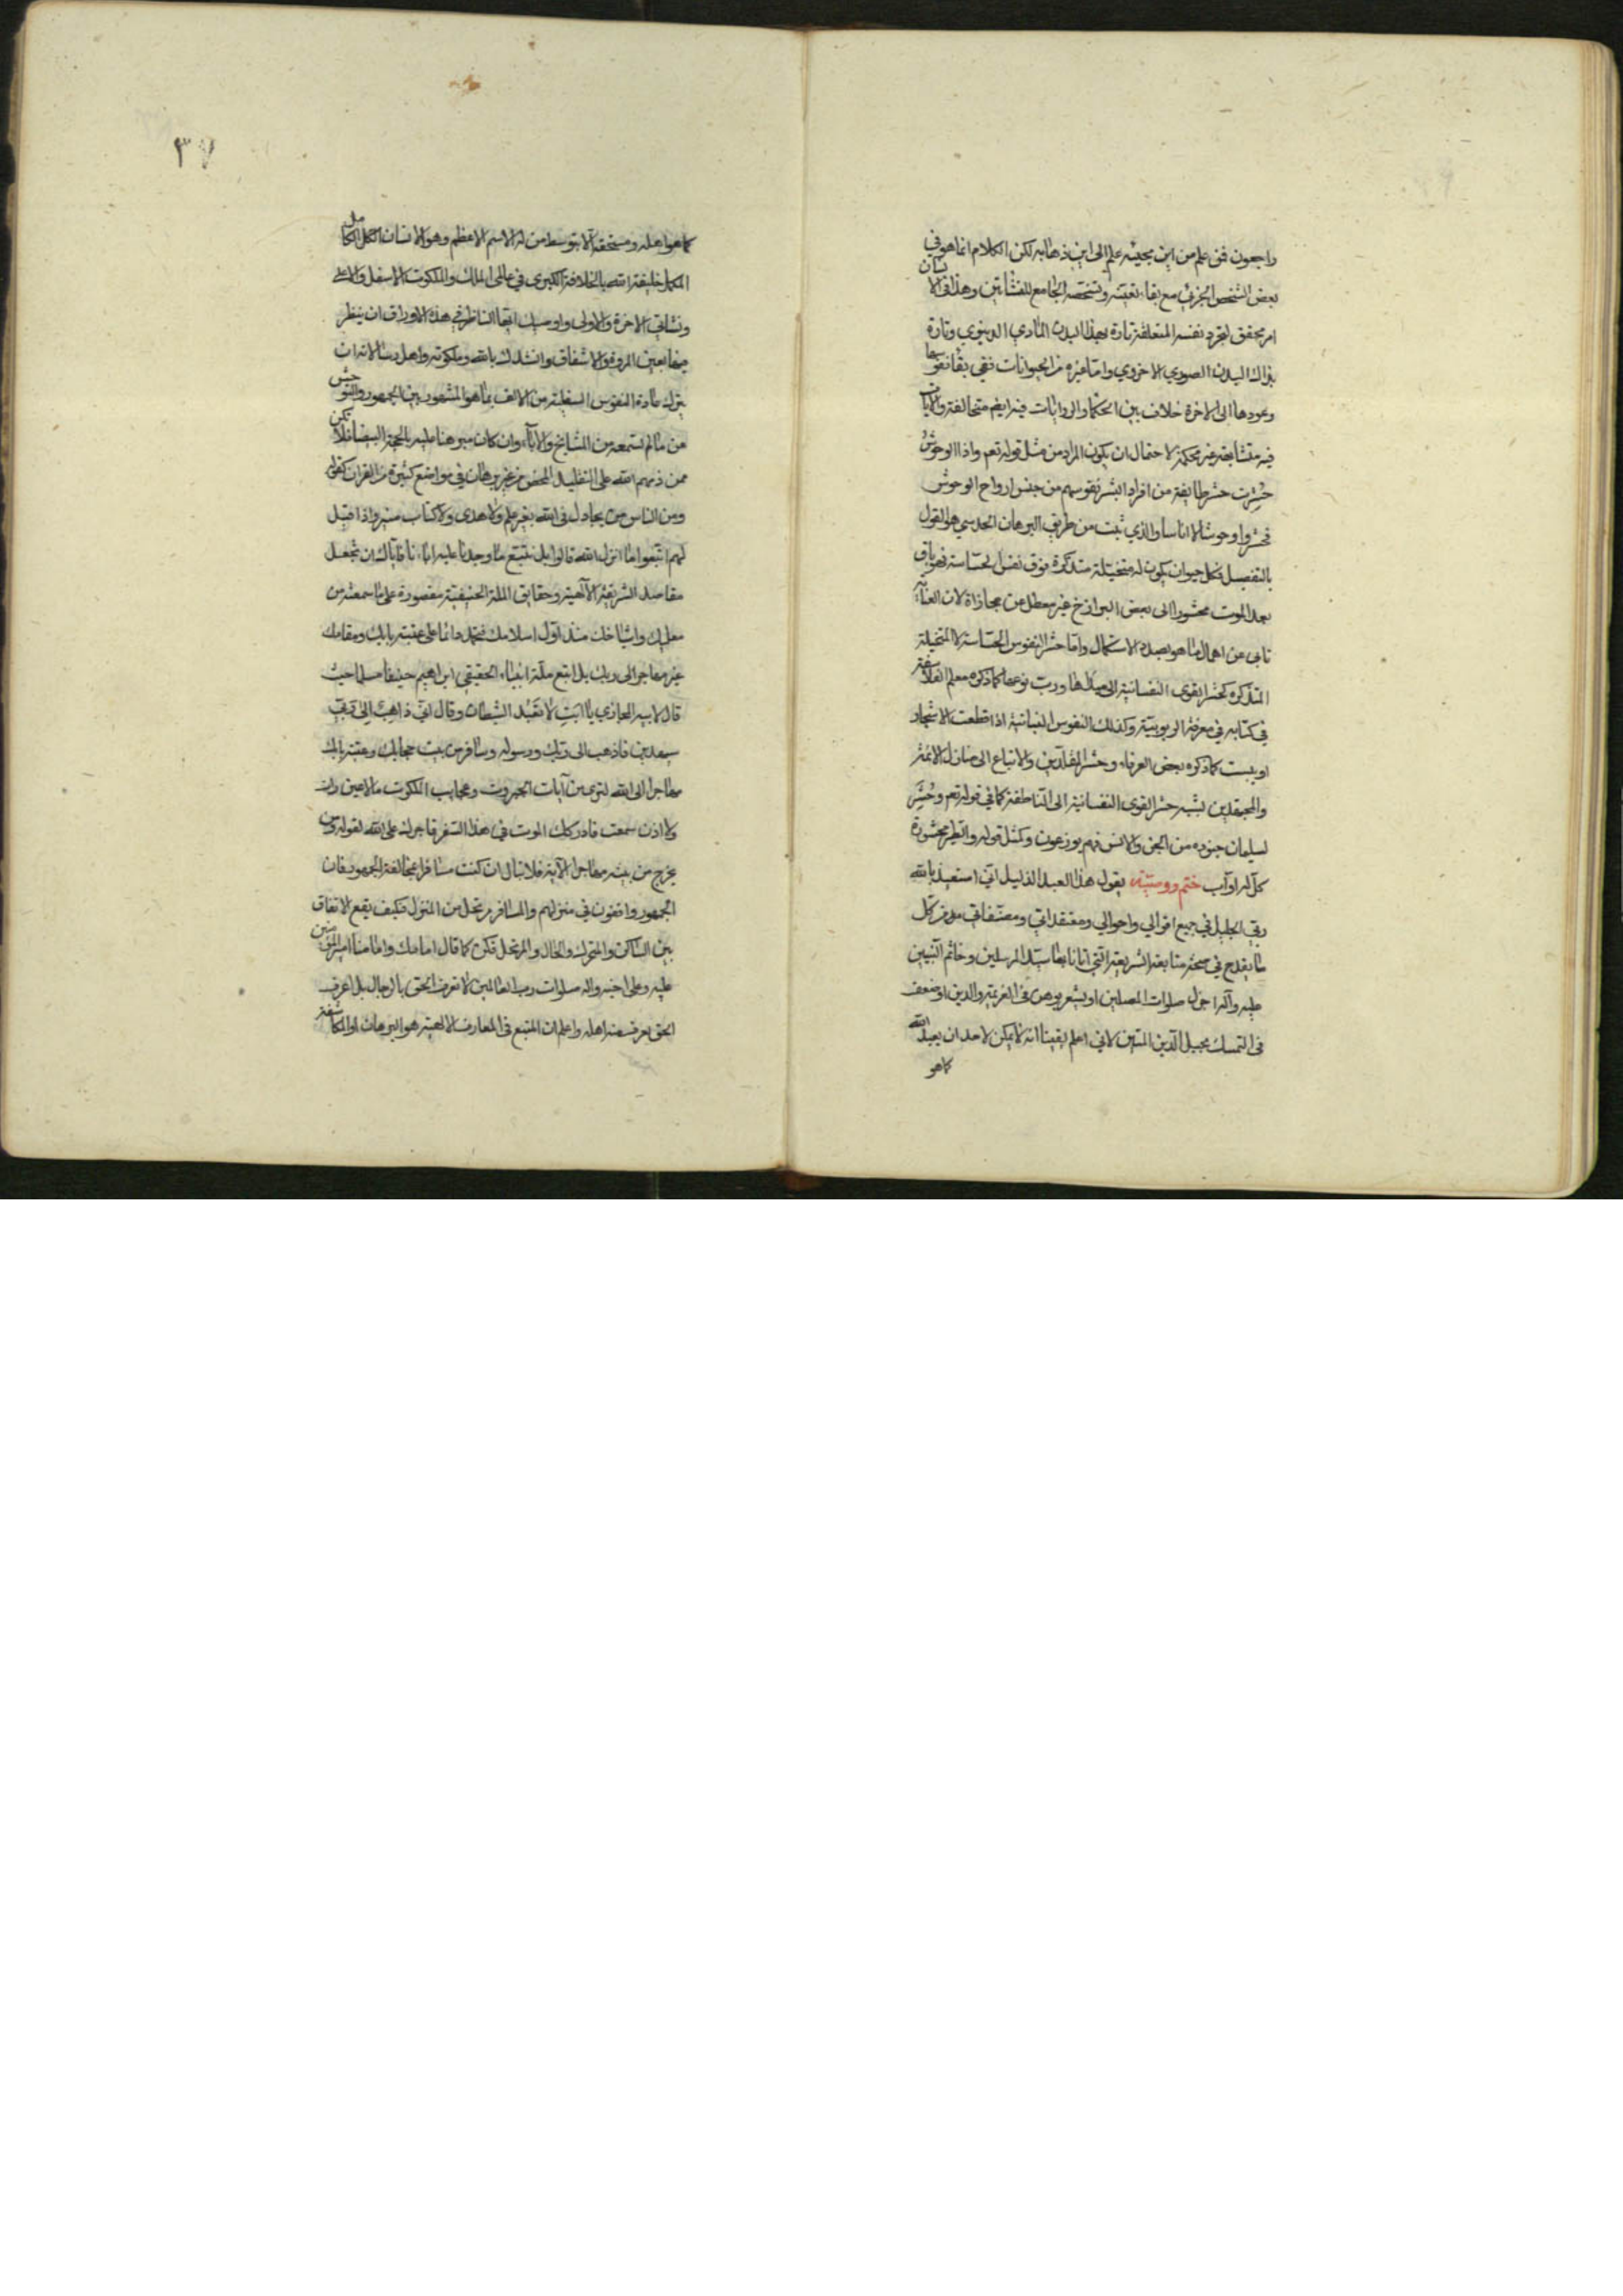 راجعون فمن علم من اين مجيئه علم الى اين ذهابه لكن الكلام انما هو في
بعض الشخص الجزئي مع بقاء تعينه وتشخصه الجامع للنشأتين وهذا في الانسان
امر محقق لتجرد نفسه المتعلقة تارة بهذا البدن المادي الدنيوي وتارة
بذاك البدن الصوري الاخروي واما غيره من الحيوانات ففي بقاء نفوسها
وعودها الى الاخرة خلاف بين الحكما والروايات فيه ايضم متخالفة والايات
فيه متشابهة غير محكمة لاحتمال ان يكون المراد من مثل قوله تعم واذا الوحوش
حُشِرت حشر طايفة من افراد البشر نفوسهم من جنس ارواح الوحوش
فحشروا وحوشا لا اناسا والذي ثبت من طريق البرهان الحدسي هو القول
بالتفصيل فكل حيوان يكون له متخيلة متذكرة فوق نفس الحساسة فهو باق
بعد الموت محشور الى بعض البرازخ غير معطل عن مجازاة لان العناية
تابى عن اهمال ما هو بصدد الاستكمال واما حشر النفوس الحساسة لا المتخيلة
المتذكره كحشر القوى النفسانية الى مبدئها ورب نوعها كما ذكره معلم الفلاسفة
في كتابه في معرفة الربوبية وكذلك النفوس النباتية اذا قطعت الاشجار
او يبست كما ذكره بعض العرفاء وحشر المقلدين والاتباع الى منازل الائمة
والمجتهدين لشبه حشر القوى النفسانية الى الناطقة كما في قوله تعم وحُشِر
لسليمان جنوده من الجن والانس فهم يوزعون وكمثل قوله والطير محشورة
كل له اواب ختم ووصية يقول هذا العبد الذليل اني استعيذ بالله
ربي الجليل في جميع اقوالي واحوالي ومعتقداتي ومصنفاتي من كل
ما يقدح في صحة متابعة الشريعة التي اتانا بها سيد المرسلين وخاتم النبيين
عليه وآله اجزل صلوات المصلين او يشعر بوهن في العزيمة والدين او ضعف
في التمسك بحبل الدين المتين لاني اعلم يقينا انه لا يمكن لاحد ان يعبد الله
كما هو
٣٧
كما هو اهله ومستحقه الا بتوسط من له الاسم الاعظم وهو الانسان الكامل
المكمل خليفة الله بالخلافة الكبرى في عالمي الملك والملكوت الاسفل والاعلى
ونشاتي الاخرة والاولى واوصيك ايها الناظر في هذه الاوراق ان ينظر
فيها بعين المروة والاشفاق وانشدك بالله وملكوته واهل رسالاته ان
يترك عادة النفوس السفلية من الالف بما هو المشهور بين الجمهور والتوحش
عن ما لم تسمعه من المشايخ والاباء وان كان مبرهنا عليه بالحجة البيضا فلا تكن
ممن ذمهم الله على التقليد المحض من غير برهان في مواضع كثيرة من القران كقوله
ومن الناس من يجادل في الله بغير علم ولا هدى ولا كتاب منير واذا قيل
لهم اتبعوا ما انزل الله قالوا بل نتبع ما وجدنا عليه اباءنا فاياك ان تجعل
مقاصد الشريعة الآلهية وحقايق الملة الحنيفية مقصورة على ما سمعته من
معلميك واشياخك منذ اول اسلامك فتجمد دائما على عتبة بابك ومقامك
غير مهاجر الى ربك بل اتبع ملة ابينا الحقيقي ابراهيم حنيفا مسلما حيث
قال لابيه المجازي يا ابت لا تعبد الشيطان وقال اني ذاهب الى ربي
سيهدين فاذهب الى ربك ورسوله وسافر من بيت حجابك وعتبة بابك
مهاجرا الى الله لترى من آيات الجبروت وعجايب الملكوت ما لا عين رات
ولا اذن سمعت فان ادركك الموت في هذا السفر فاجرك على الله لقوله ومن
يخرج من بيته مهاجرا الآية فلا تبال ان كنت مسافرا بمخالفة الجمهور فان
الجمهور واقفون في منزلهم والمسافر مرتحل من المنزل فكيف يقع الاتفاق
بين الساكن والمتحرك والحال والمرتحل فكن كما قال امامك وامامنا امير المؤمنين
عليه وعلى اخيه واله صلوات رب العالمين لا تعرف الحق بالرجال بل اعرف
الحق تعرف منه اهله واعلم ان المتبع في المعارف الالهية هو البرهان او المكاشفة